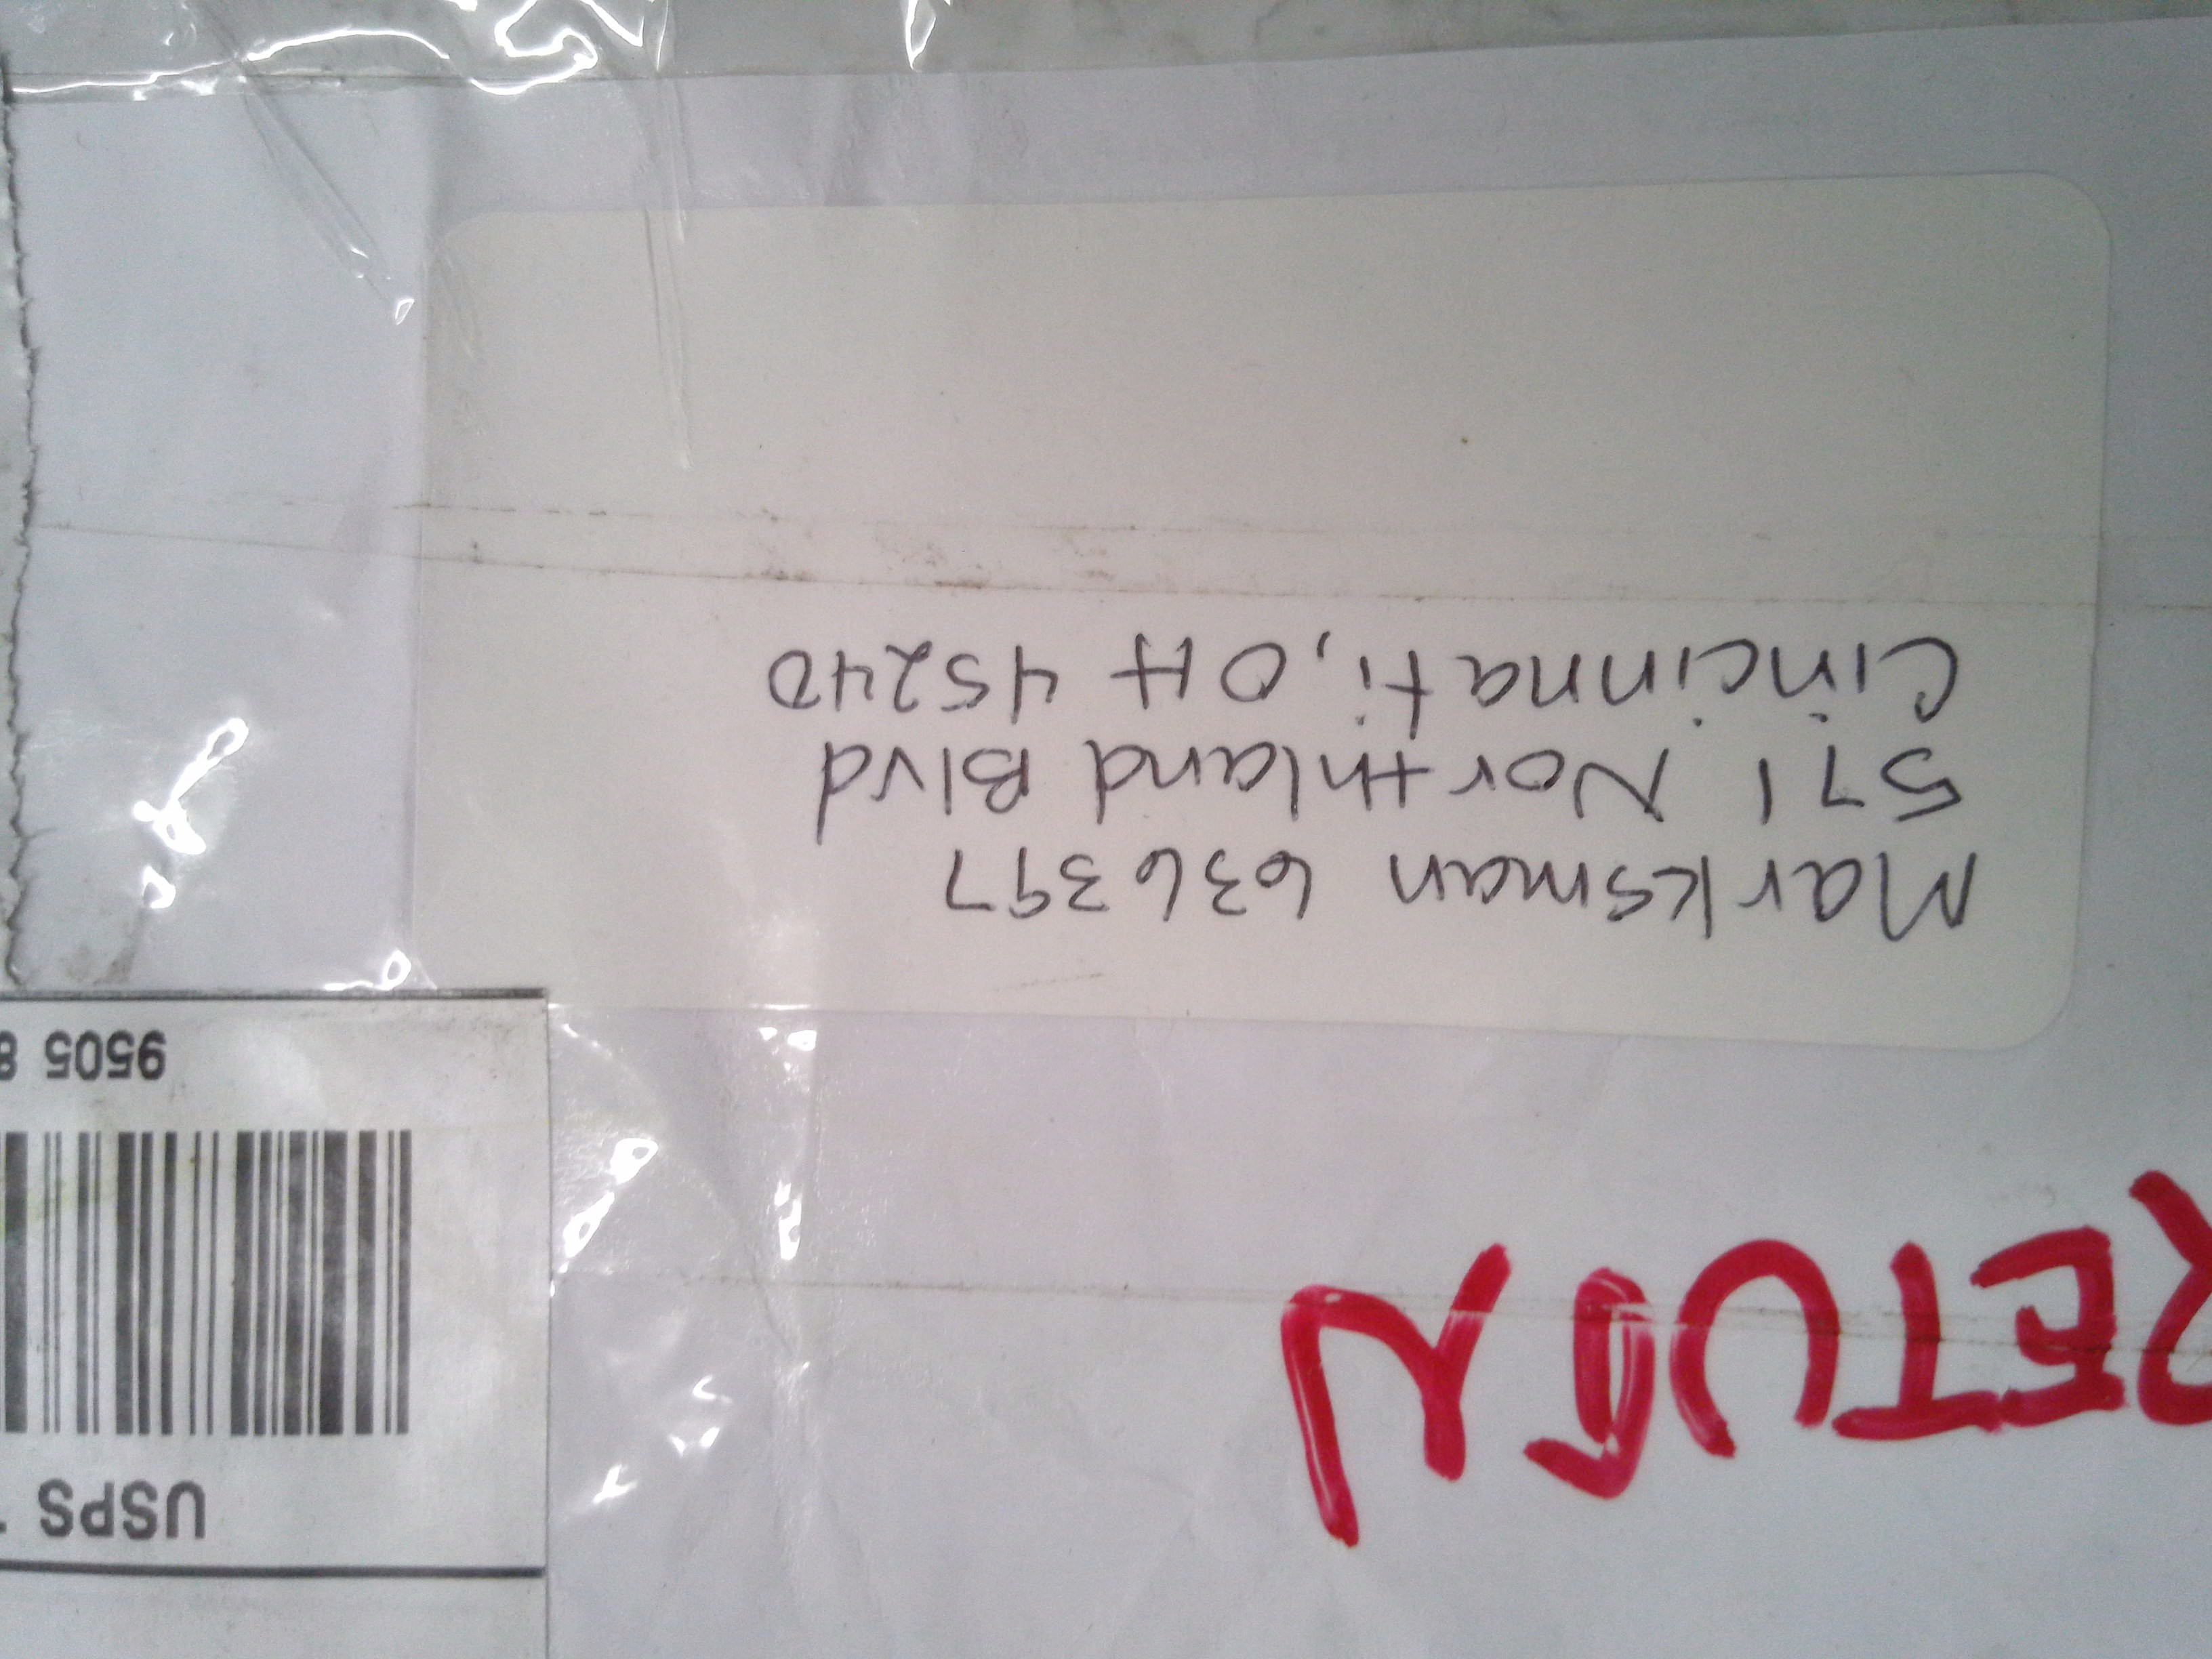 RETURN
Marksman 636397
571 Northland Blvd
Cincinnati, OH 45240
USPS
9505 8